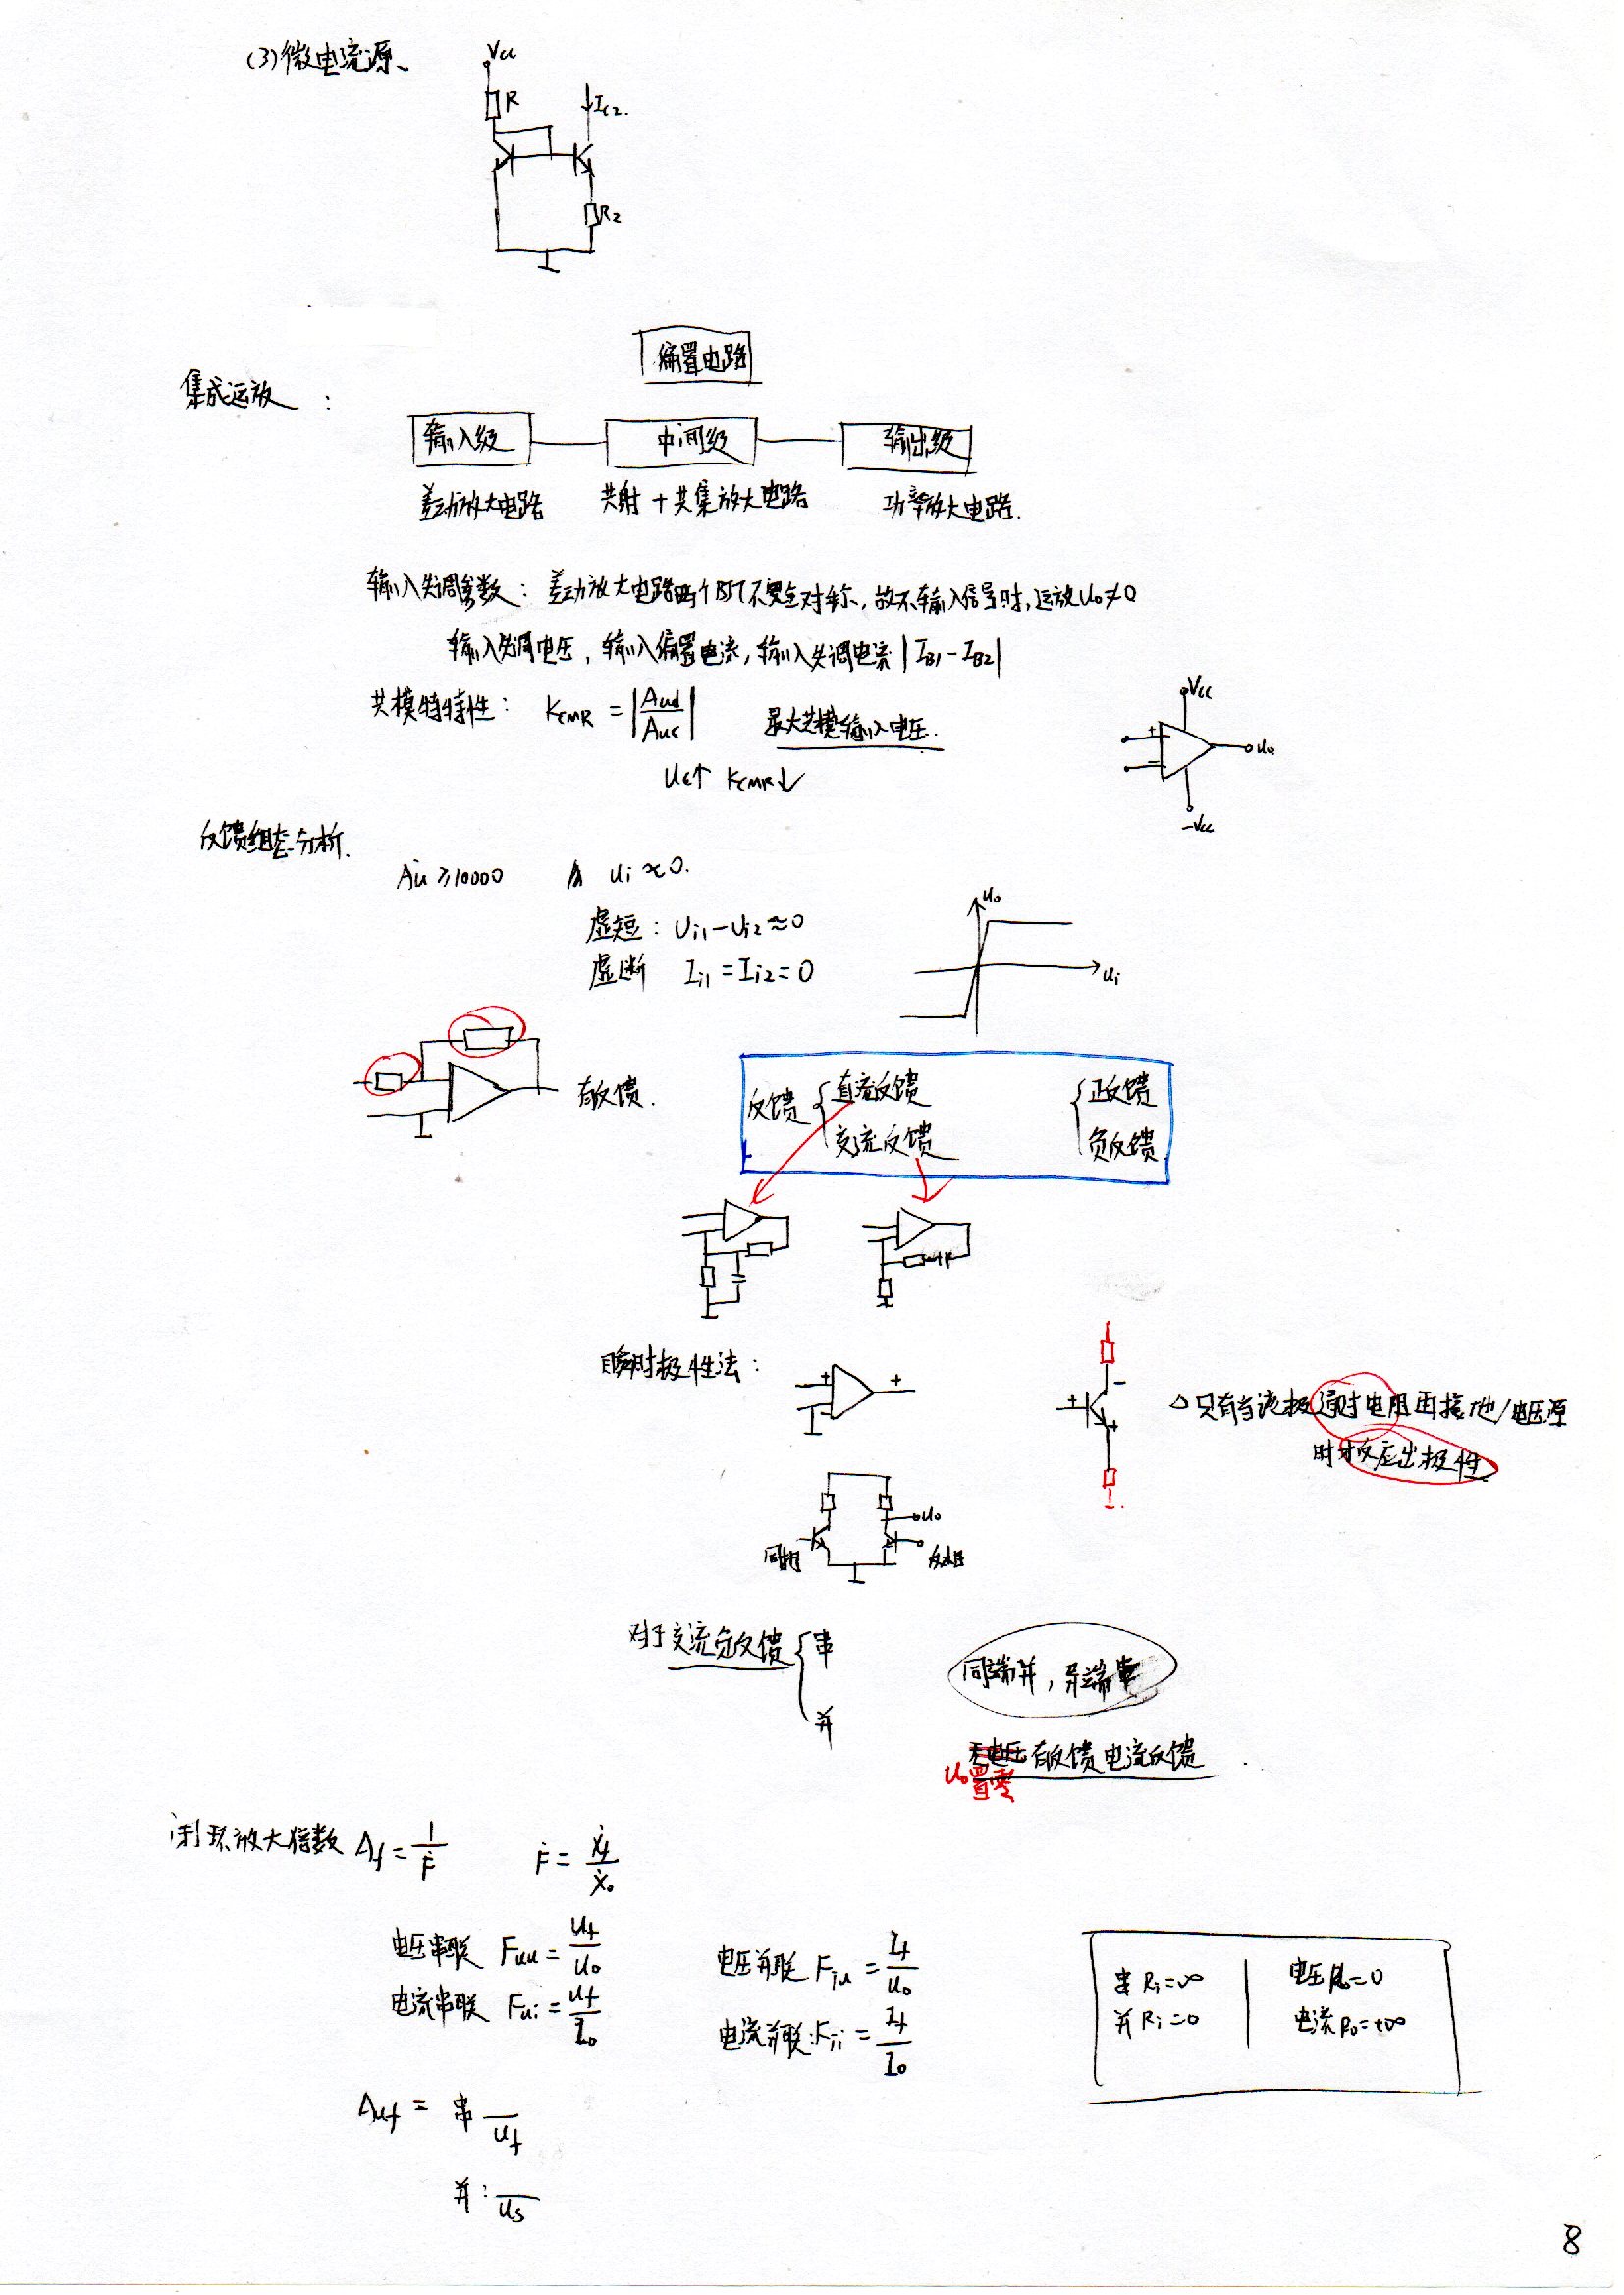 (3)微电流源、
Vcc
R
Ic2.
R2
偏置电路
集成运放 :
输入级 中间级 输出级
差动放大电路 共射+共集放大电路 功率放大电路.
输入失调参数: 差动放大电路两个BJT不完全对称, 故不输入信号时, 运放Uo≠0
输入失调电压, 输入偏置电流, 输入失调电流 |IB1-IB2|
共模特特性: KCMR = |Aud/Auc| 最大共模输入电压.
Uc↑ KCMR↓
Vcc
+
-
uo
-Vcc
反馈组态分析.
Au ≥10000 ui≈0.
虚短: Ui1-Ui2≈0
虚断 Ii1=Ii2=0
uo
ui
有反馈.
反馈 { 直流反馈 { 正反馈
交流反馈 负反馈
瞬时极性法:
+ - +
+ - +
△只有当该极通过电阻再接地/电压源
时才反应出极性
uo
同相 反相
对于交流负反馈 { 串
并
同端并, 异端串
无电压有反馈电流反馈
Uo置零
闭环放大倍数 Af=1/Ḟ Ḟ=Ẋf/Ẋo
电压串联 Fuu=Uf/Uo 电压并联 Fiu=If/Uo
电流串联 Fui=Uf/Io 电流并联: Fii=If/Io
串 Ri=∞ 电压Ro=0
并 Ri=0 电流Ro=+∞
Auf= 串 —/Uf
并: —/Us
8